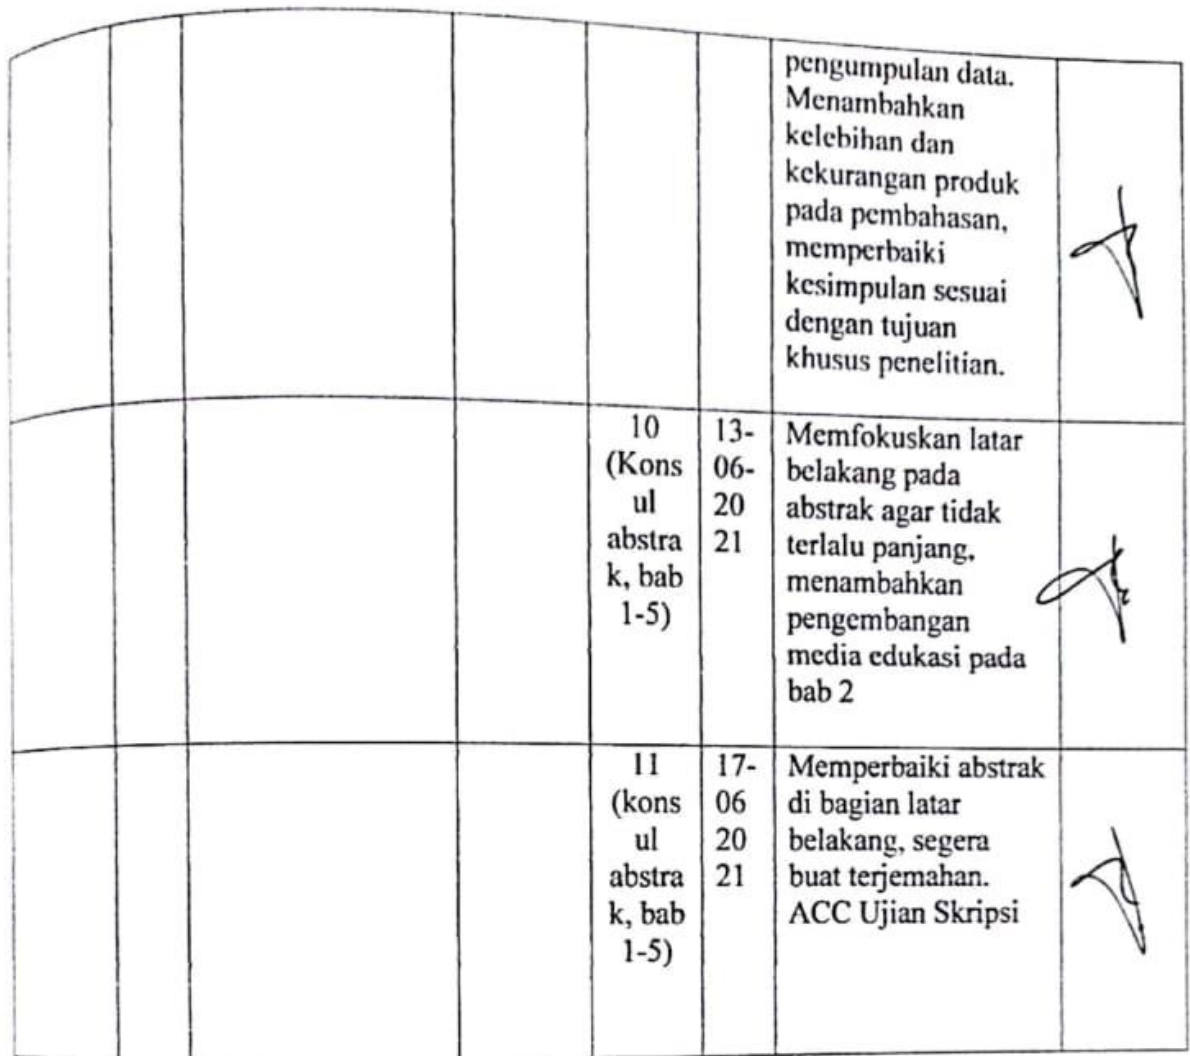 pengumpulan data.
Menambahkan
kelebihan dan
kekurangan produk
pada pembahasan,
memperbaiki
kesimpulan sesuai
dengan tujuan
khusus penelitian.
10
(Kons
ul
abstra
k, bab
1-5)
13-
06-
20
21
Memfokuskan latar
belakang pada
abstrak agar tidak
terlalu panjang,
menambahkan
pengembangan
media edukasi pada
bab 2
11
(kons
ul
abstra
k, bab
1-5)
17-
06
20
21
Memperbaiki abstrak
di bagian latar
belakang, segera
buat terjemahan.
ACC Ujian Skripsi